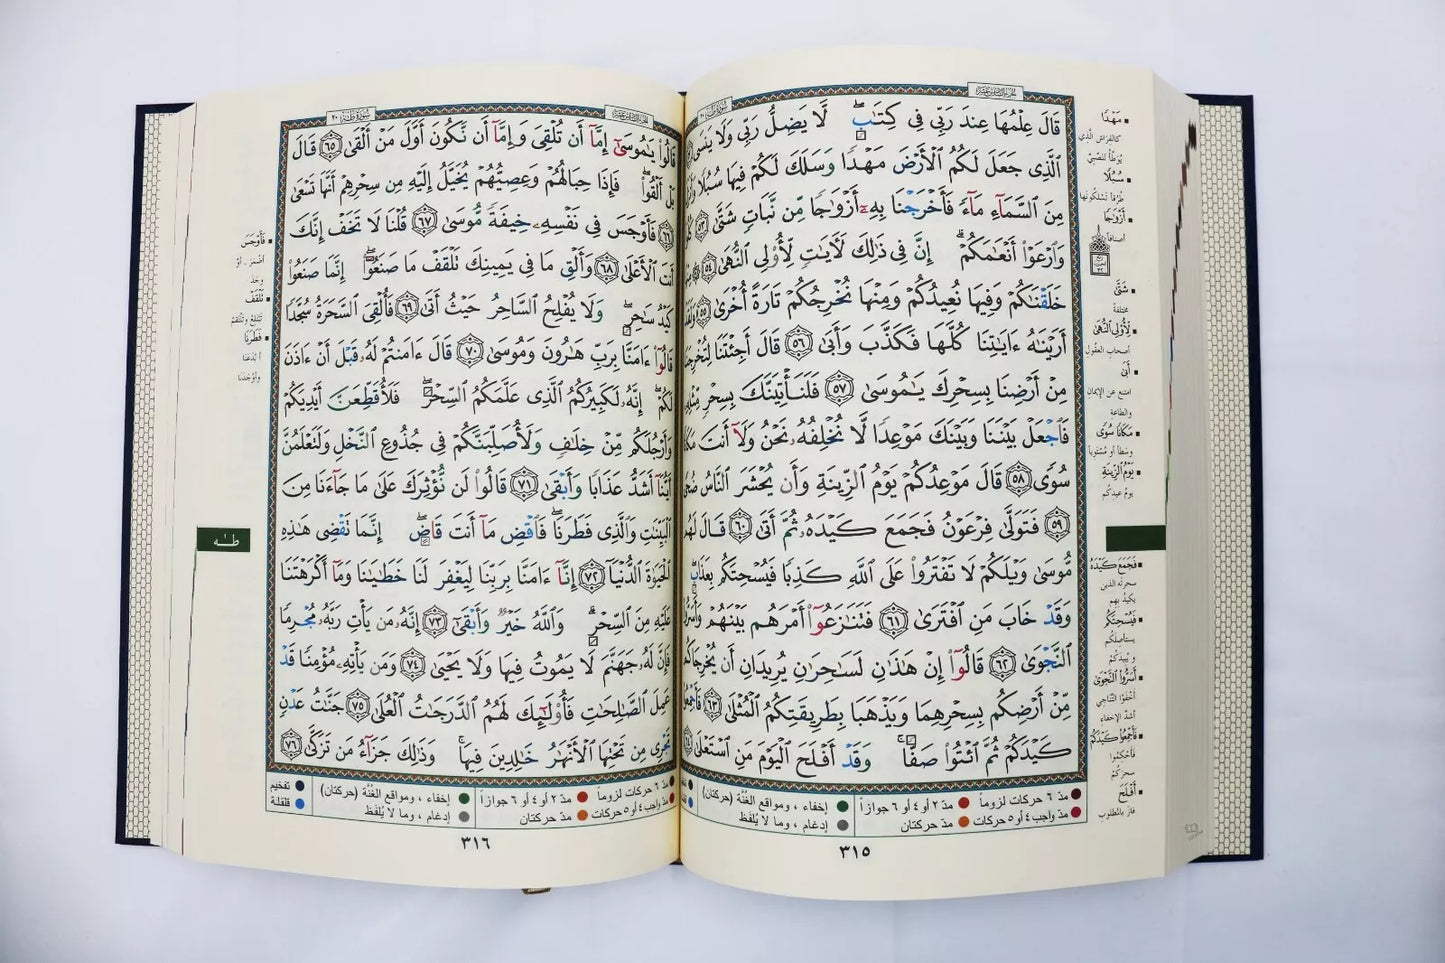 الجزء السادس عشر
قَالَ عِلْمُهَا عِندَ رَبِّى فِى كِتَٰبٍ ۖ لَّا يَضِلُّ رَبِّى وَلَا يَنسَى
ٱلَّذِى جَعَلَ لَكُمُ ٱلْأَرْضَ مَهْدًا وَسَلَكَ لَكُمْ فِيهَا سُبُلًا
مِنَ ٱلسَّمَآءِ مَآءً فَأَخْرَجْنَا بِهِۦٓ أَزْوَٰجًا مِّن نَّبَاتٍ شَتَّىٰ ٥٣
وَٱرْعَوْا۟ أَنْعَٰمَكُمْ ۗ إِنَّ فِى ذَٰلِكَ لَءَايَٰتٍ لِّأُو۟لِى ٱلنُّهَىٰ ٥٤
خَلَقْنَٰكُمْ وَفِيهَا نُعِيدُكُمْ وَمِنْهَا نُخْرِجُكُمْ تَارَةً أُخْرَىٰ ٥٥
أَرَيْنَٰهُ ءَايَٰتِنَا كُلَّهَا فَكَذَّبَ وَأَبَىٰ ٥٦ قَالَ أَجِئْتَنَا لِتُخْرِجَنَا
مِنْ أَرْضِنَا بِسِحْرِكَ يَٰمُوسَىٰ ٥٧ فَلَنَأْتِيَنَّكَ بِسِحْرٍ مِّثْلِهِ
فَٱجْعَلْ بَيْنَنَا وَبَيْنَكَ مَوْعِدًا لَّا نُخْلِفُهُۥ نَحْنُ وَلَآ أَنتَ مَكَانًا
سُوًى ٥٨ قَالَ مَوْعِدُكُمْ يَوْمُ ٱلزِّينَةِ وَأَن يُحْشَرَ ٱلنَّاسُ ضُحًى
٥٩ فَتَوَلَّىٰ فِرْعَوْنُ فَجَمَعَ كَيْدَهُۥ ثُمَّ أَتَىٰ ٦٠ قَالَ لَهُم
مُّوسَىٰ وَيْلَكُمْ لَا تَفْتَرُوا۟ عَلَى ٱللَّهِ كَذِبًا فَيُسْحِتَكُم بِعَذَابٍ
وَقَدْ خَابَ مَنِ ٱفْتَرَىٰ ٦١ فَتَنَٰزَعُوٓا۟ أَمْرَهُم بَيْنَهُمْ وَأَسَرُّوا۟
ٱلنَّجْوَىٰ ٦٢ قَالُوٓا۟ إِنْ هَٰذَٰنِ لَسَٰحِرَٰنِ يُرِيدَانِ أَن يُخْرِجَاكُم
مِّنْ أَرْضِكُم بِسِحْرِهِمَا وَيَذْهَبَا بِطَرِيقَتِكُمُ ٱلْمُثْلَىٰ ٦٣ فَأَجْمِعُوا۟
كَيْدَكُمْ ثُمَّ ٱئْتُوا۟ صَفًّا ۚ وَقَدْ أَفْلَحَ ٱلْيَوْمَ مَنِ ٱسْتَعْلَىٰ
مَهْدًا
كالفراش الذي
يوطأ للصبي
سُبُلًا
طرقا تسلكونها
أَزْوَاجًا
أصنافا
شَتَّى
مختلفة
لِأُولِي النُّهَى
أصحاب العقول
أَبَى
امتنع عن الإيمان
والطاعة
مَكَانًا سُوًى
وسطا أو مستويا
يَوْمُ الزِّينَةِ
يوم عيدكم
فَجَمَعَ كَيْدَهُ
سحرته الذين
يكيد بهم
فَيُسْحِتَكُم
يستأصلكم
ويبيدكم
أَسَرُّوا النَّجْوَى
أخفوا التناجي
أشد الإخفاء
فَأَجْمِعُوا كَيْدَكُمْ
فأحكموا
سحركم
أَفْلَحَ
فاز بالمطلوب
مدّ ٦ حركات لزوماً مدّ ٢ أو ٤ أو ٦ جوازاً إخفاء ، ومواقع الغُنَّة (حركتان)
مدّ واجب ٤ أو ٥ حركات مدّ حركتان إدغام ، وما لا يُلفَظ
٣١٥
سورة طه ٢٠
قَالُوا۟ يَٰمُوسَىٰٓ إِمَّآ أَن تُلْقِىَ وَإِمَّآ أَن نَّكُونَ أَوَّلَ مَنْ أَلْقَىٰ ٦٥ قَالَ
بَلْ أَلْقُوا۟ ۖ فَإِذَا حِبَالُهُمْ وَعِصِيُّهُمْ يُخَيَّلُ إِلَيْهِ مِن سِحْرِهِمْ أَنَّهَا تَسْعَىٰ
٦٦ فَأَوْجَسَ فِى نَفْسِهِۦ خِيفَةً مُّوسَىٰ ٦٧ قُلْنَا لَا تَخَفْ إِنَّكَ
أَنتَ ٱلْأَعْلَىٰ ٦٨ وَأَلْقِ مَا فِى يَمِينِكَ تَلْقَفْ مَا صَنَعُوٓا۟ ۖ إِنَّمَا صَنَعُوا۟
كَيْدُ سَٰحِرٍ ۖ وَلَا يُفْلِحُ ٱلسَّاحِرُ حَيْثُ أَتَىٰ ٦٩ فَأُلْقِىَ ٱلسَّحَرَةُ سُجَّدًا
قَالُوٓا۟ ءَامَنَّا بِرَبِّ هَٰرُونَ وَمُوسَىٰ ٧٠ قَالَ ءَامَنتُمْ لَهُۥ قَبْلَ أَنْ ءَاذَنَ
لَكُمْ ۖ إِنَّهُۥ لَكَبِيرُكُمُ ٱلَّذِى عَلَّمَكُمُ ٱلسِّحْرَ ۖ فَلَأُقَطِّعَنَّ أَيْدِيَكُمْ
وَأَرْجُلَكُم مِّنْ خِلَٰفٍ وَلَأُصَلِّبَنَّكُمْ فِى جُذُوعِ ٱلنَّخْلِ وَلَتَعْلَمُنَّ
أَيُّنَآ أَشَدُّ عَذَابًا وَأَبْقَىٰ ٧١ قَالُوا۟ لَن نُّؤْثِرَكَ عَلَىٰ مَا جَآءَنَا مِنَ
ٱلْبَيِّنَٰتِ وَٱلَّذِى فَطَرَنَا ۖ فَٱقْضِ مَآ أَنتَ قَاضٍ ۖ إِنَّمَا تَقْضِى هَٰذِهِ
ٱلْحَيَوٰةَ ٱلدُّنْيَآ ٧٢ إِنَّآ ءَامَنَّا بِرَبِّنَا لِيَغْفِرَ لَنَا خَطَٰيَٰنَا وَمَآ أَكْرَهْتَنَا
عَلَيْهِ مِنَ ٱلسِّحْرِ ۗ وَٱللَّهُ خَيْرٌ وَأَبْقَىٰٓ ٧٣ إِنَّهُۥ مَن يَأْتِ رَبَّهُۥ مُجْرِمًا
فَإِنَّ لَهُۥ جَهَنَّمَ لَا يَمُوتُ فِيهَا وَلَا يَحْيَىٰ ٧٤ وَمَن يَأْتِهِۦ مُؤْمِنًا قَدْ
عَمِلَ ٱلصَّٰلِحَٰتِ فَأُو۟لَٰٓئِكَ لَهُمُ ٱلدَّرَجَٰتُ ٱلْعُلَىٰ ٧٥ جَنَّٰتُ عَدْنٍ
تَجْرِى مِن تَحْتِهَا ٱلْأَنْهَٰرُ خَٰلِدِينَ فِيهَا ۚ وَذَٰلِكَ جَزَآءُ مَن تَزَكَّىٰ ٧٦
فَأَوْجَسَ
أضمر ، أو
وجد
تَلْقَفْ
تبتلع وتلتقم
فَطَرَنَا
أبدعنا
وأوجدنا
طه
مدّ ٦ حركات لزوماً مدّ ٢ أو ٤ أو ٦ جوازاً إخفاء ، ومواقع الغُنَّة (حركتان) تفخيم
مدّ واجب ٤ أو ٥ حركات مدّ حركتان إدغام ، وما لا يُلفَظ قلقلة
٣١٦